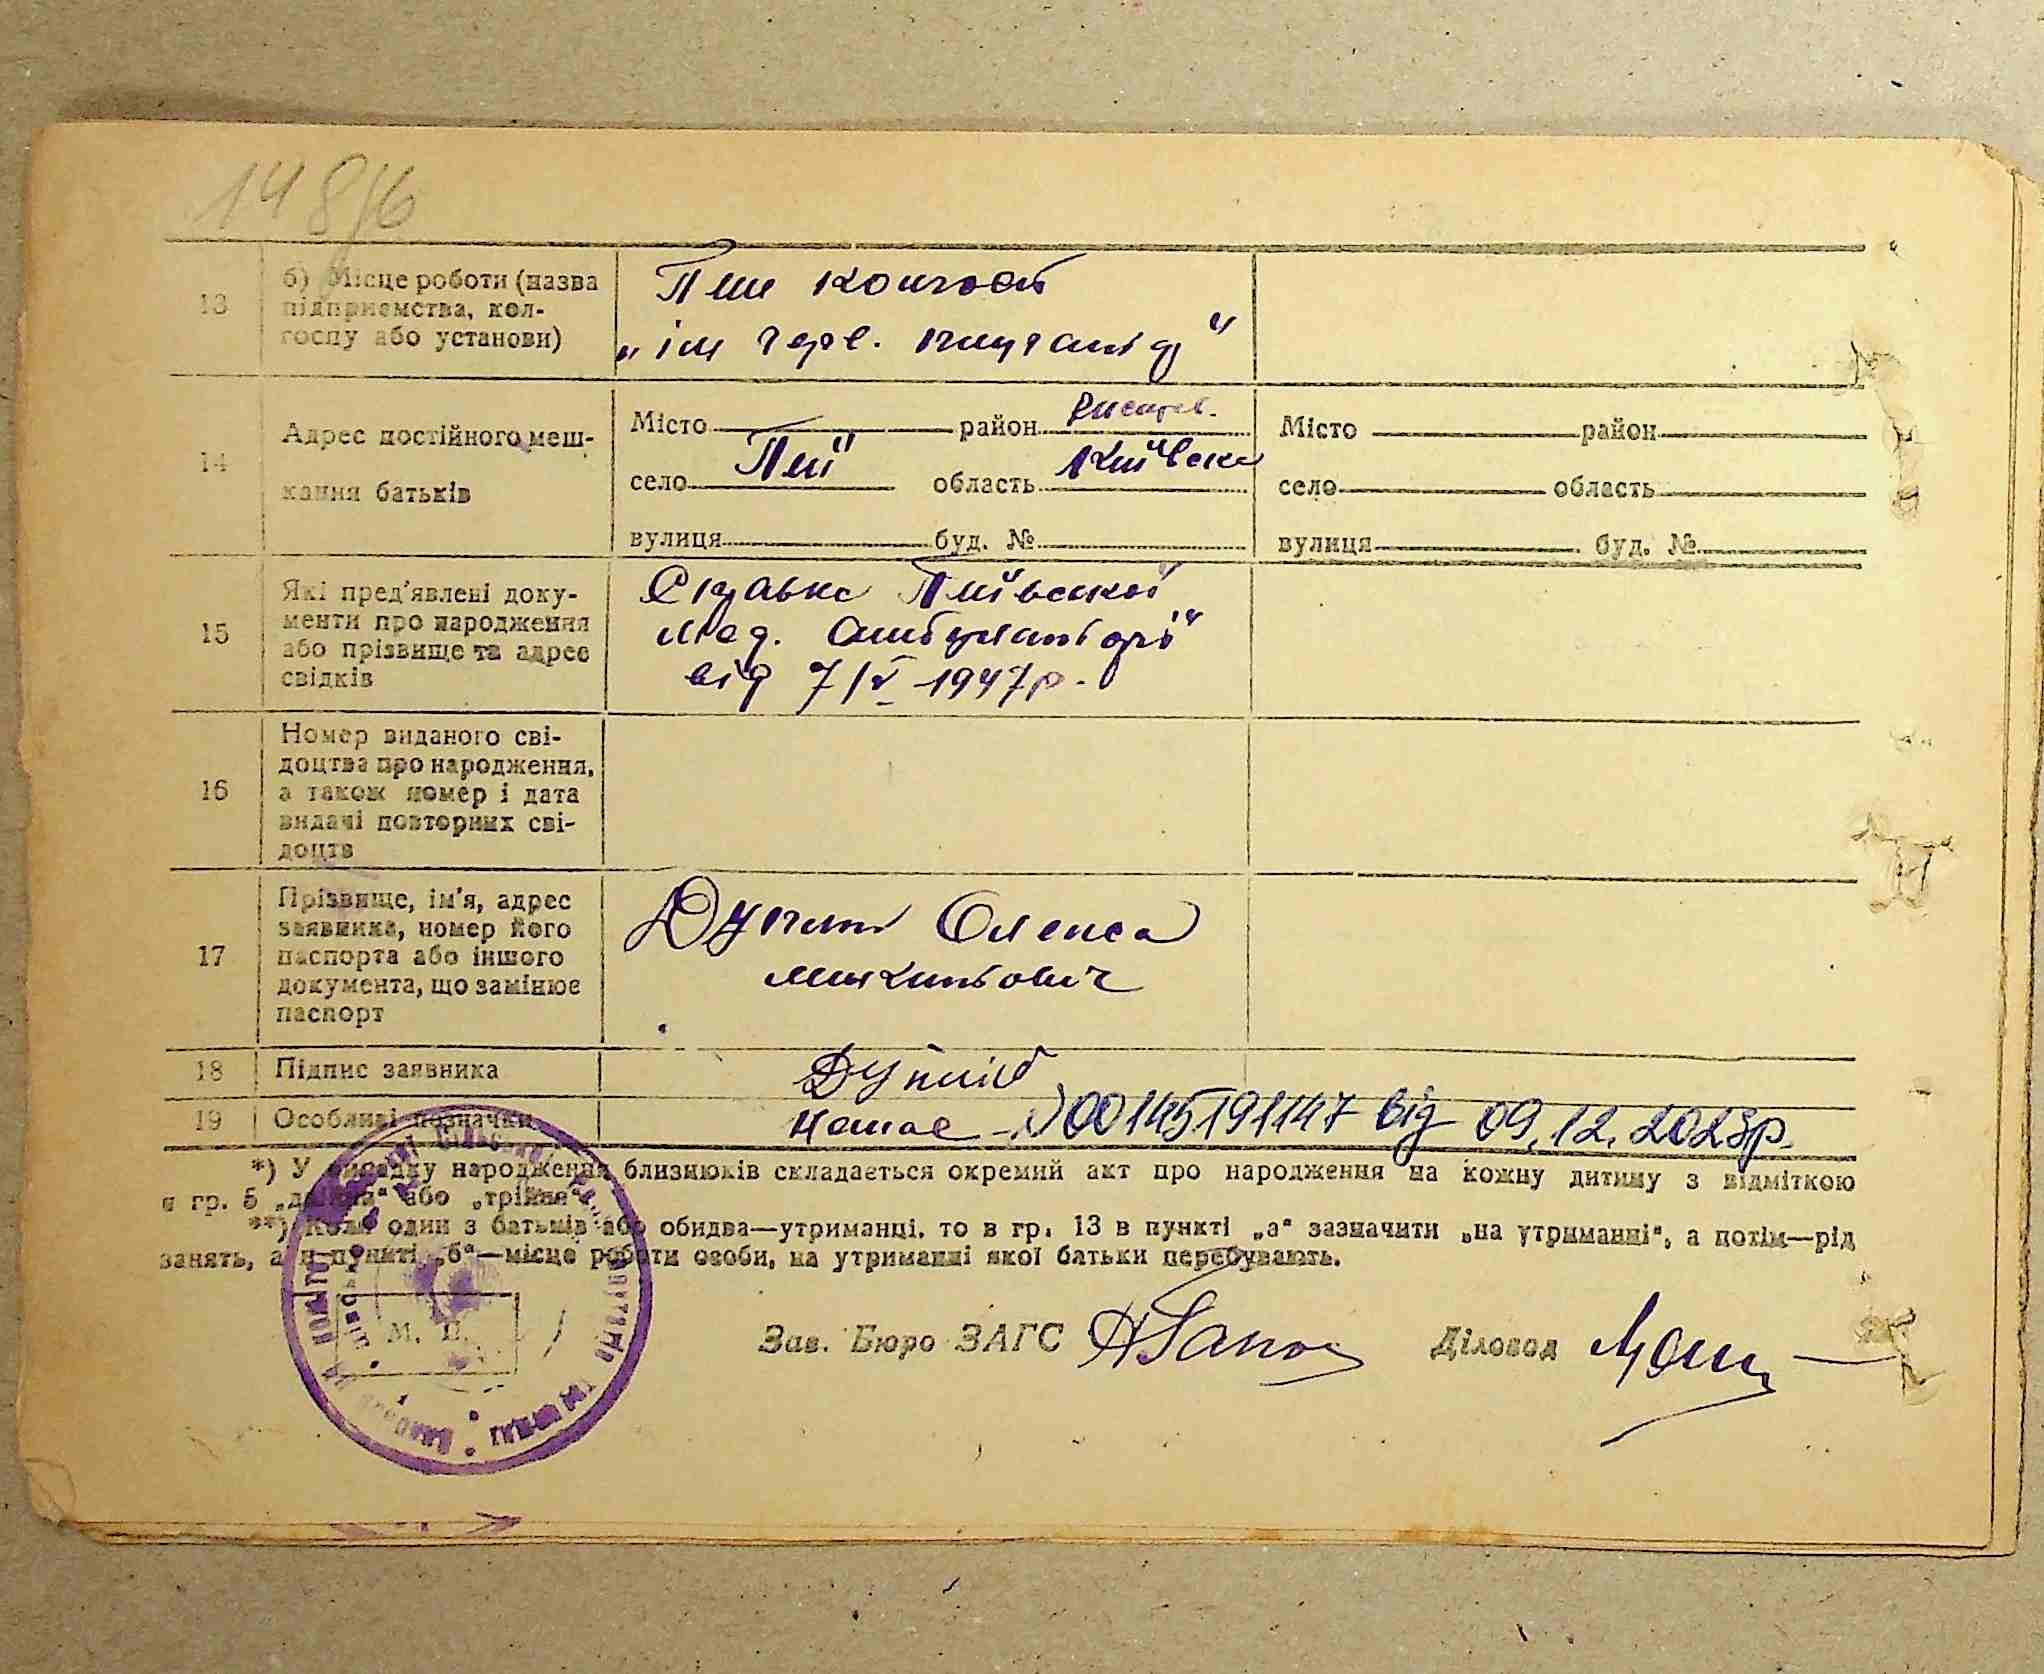 148/6
13
б) Місце роботи (назва
підприємства, кол-
госпу або установи)
Пії колгосп
„ім черв. прапору"
14
Адрес постійного меш-
кання батьків
Місто район
село Пії область Київська
вулиця буд. №
Місто район
село область
вулиця буд. №
15
Які пред'явлені доку-
менти про народження
або прізвище та адрес
свідків
Справка Піївської
мед. амбулаторії
від 7/V 1947р.
16
Номер виданого сві-
доцтва про народження,
а також номер і дата
видачі повторних сві-
доцтв
17
Прізвище, ім'я, адрес
заявника, номер його
паспорта або іншого
документа, що замінює
паспорт
Олекса
Микитович
18
Підпис заявника
19
Особливі позначки
Немає - №00145191147 від 09.12.2023р.
*) У випадку народження близнюків складається окремий акт про народження на кожну дитину з відміткою
в гр. 5 „двійня" або „трійня".
**) Коли один з батьків або обидва—утриманці, то в гр. 13 в пункті „а" зазначити „на утриманні", а потім—рід
занять, а в пункті „б"—місце роботи особи, на утриманні якої батьки перебувають.
М. П.
Зав. Бюро ЗАГС
Діловод